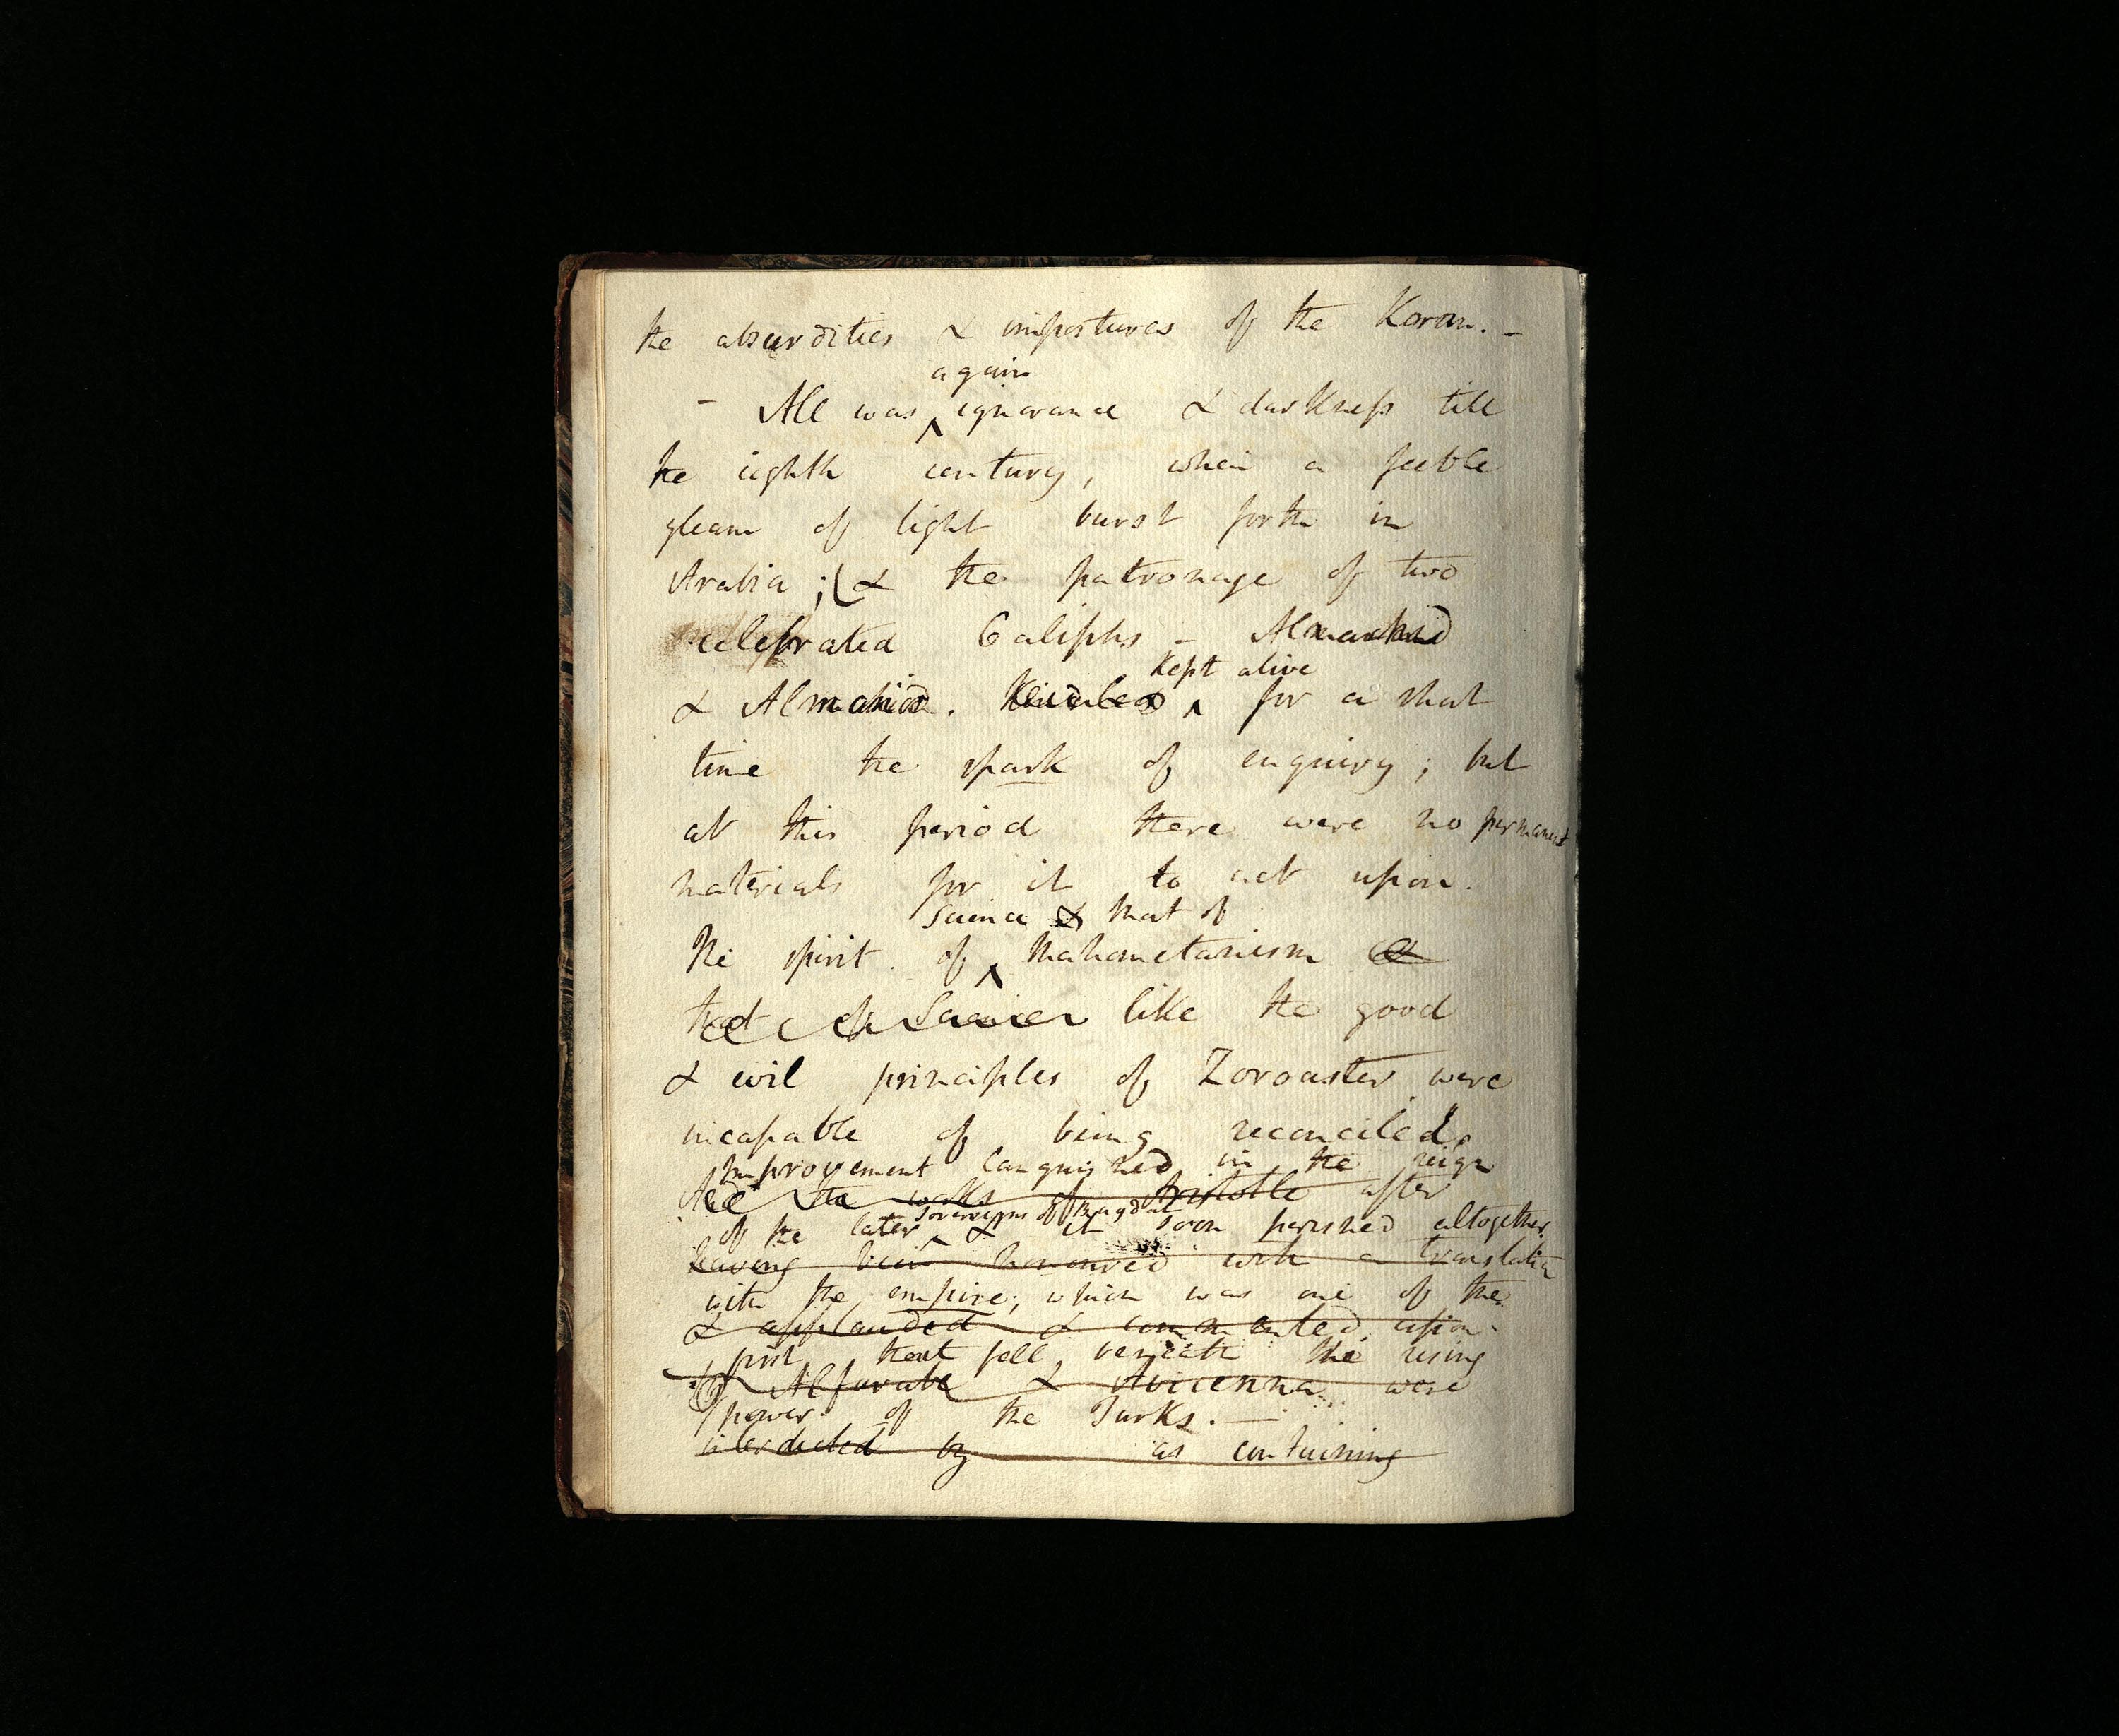 the absurdities & impostures of the Koran. –
again
– All was ^ ignorance & darkness till
the eighth century, when a feeble
gleam of light burst forth in
Arabia ; (& the patronage of two
celebrated Caliphs –
kept alive
& . ^ for a short
time the spark of enquiry ; but
at this period there were no permanent
materials for it to act upon.
Science & that of
The spirit of ^ Mahometanism &
that of Science like the good
& evil principles of Zoroaster were
incapable of being reconciled.
Improvement languished in the reign
the works of Aristotle after
sovereigns of Bagdat
of the later ^ & it soon perished altogether
having been honoured with a translation
with the empire; which was one of the
& applauded & commented upon
first that fell beneath the rising
Alfarabe & Avicenna were
power of the Turks. —
interdicted by as containing